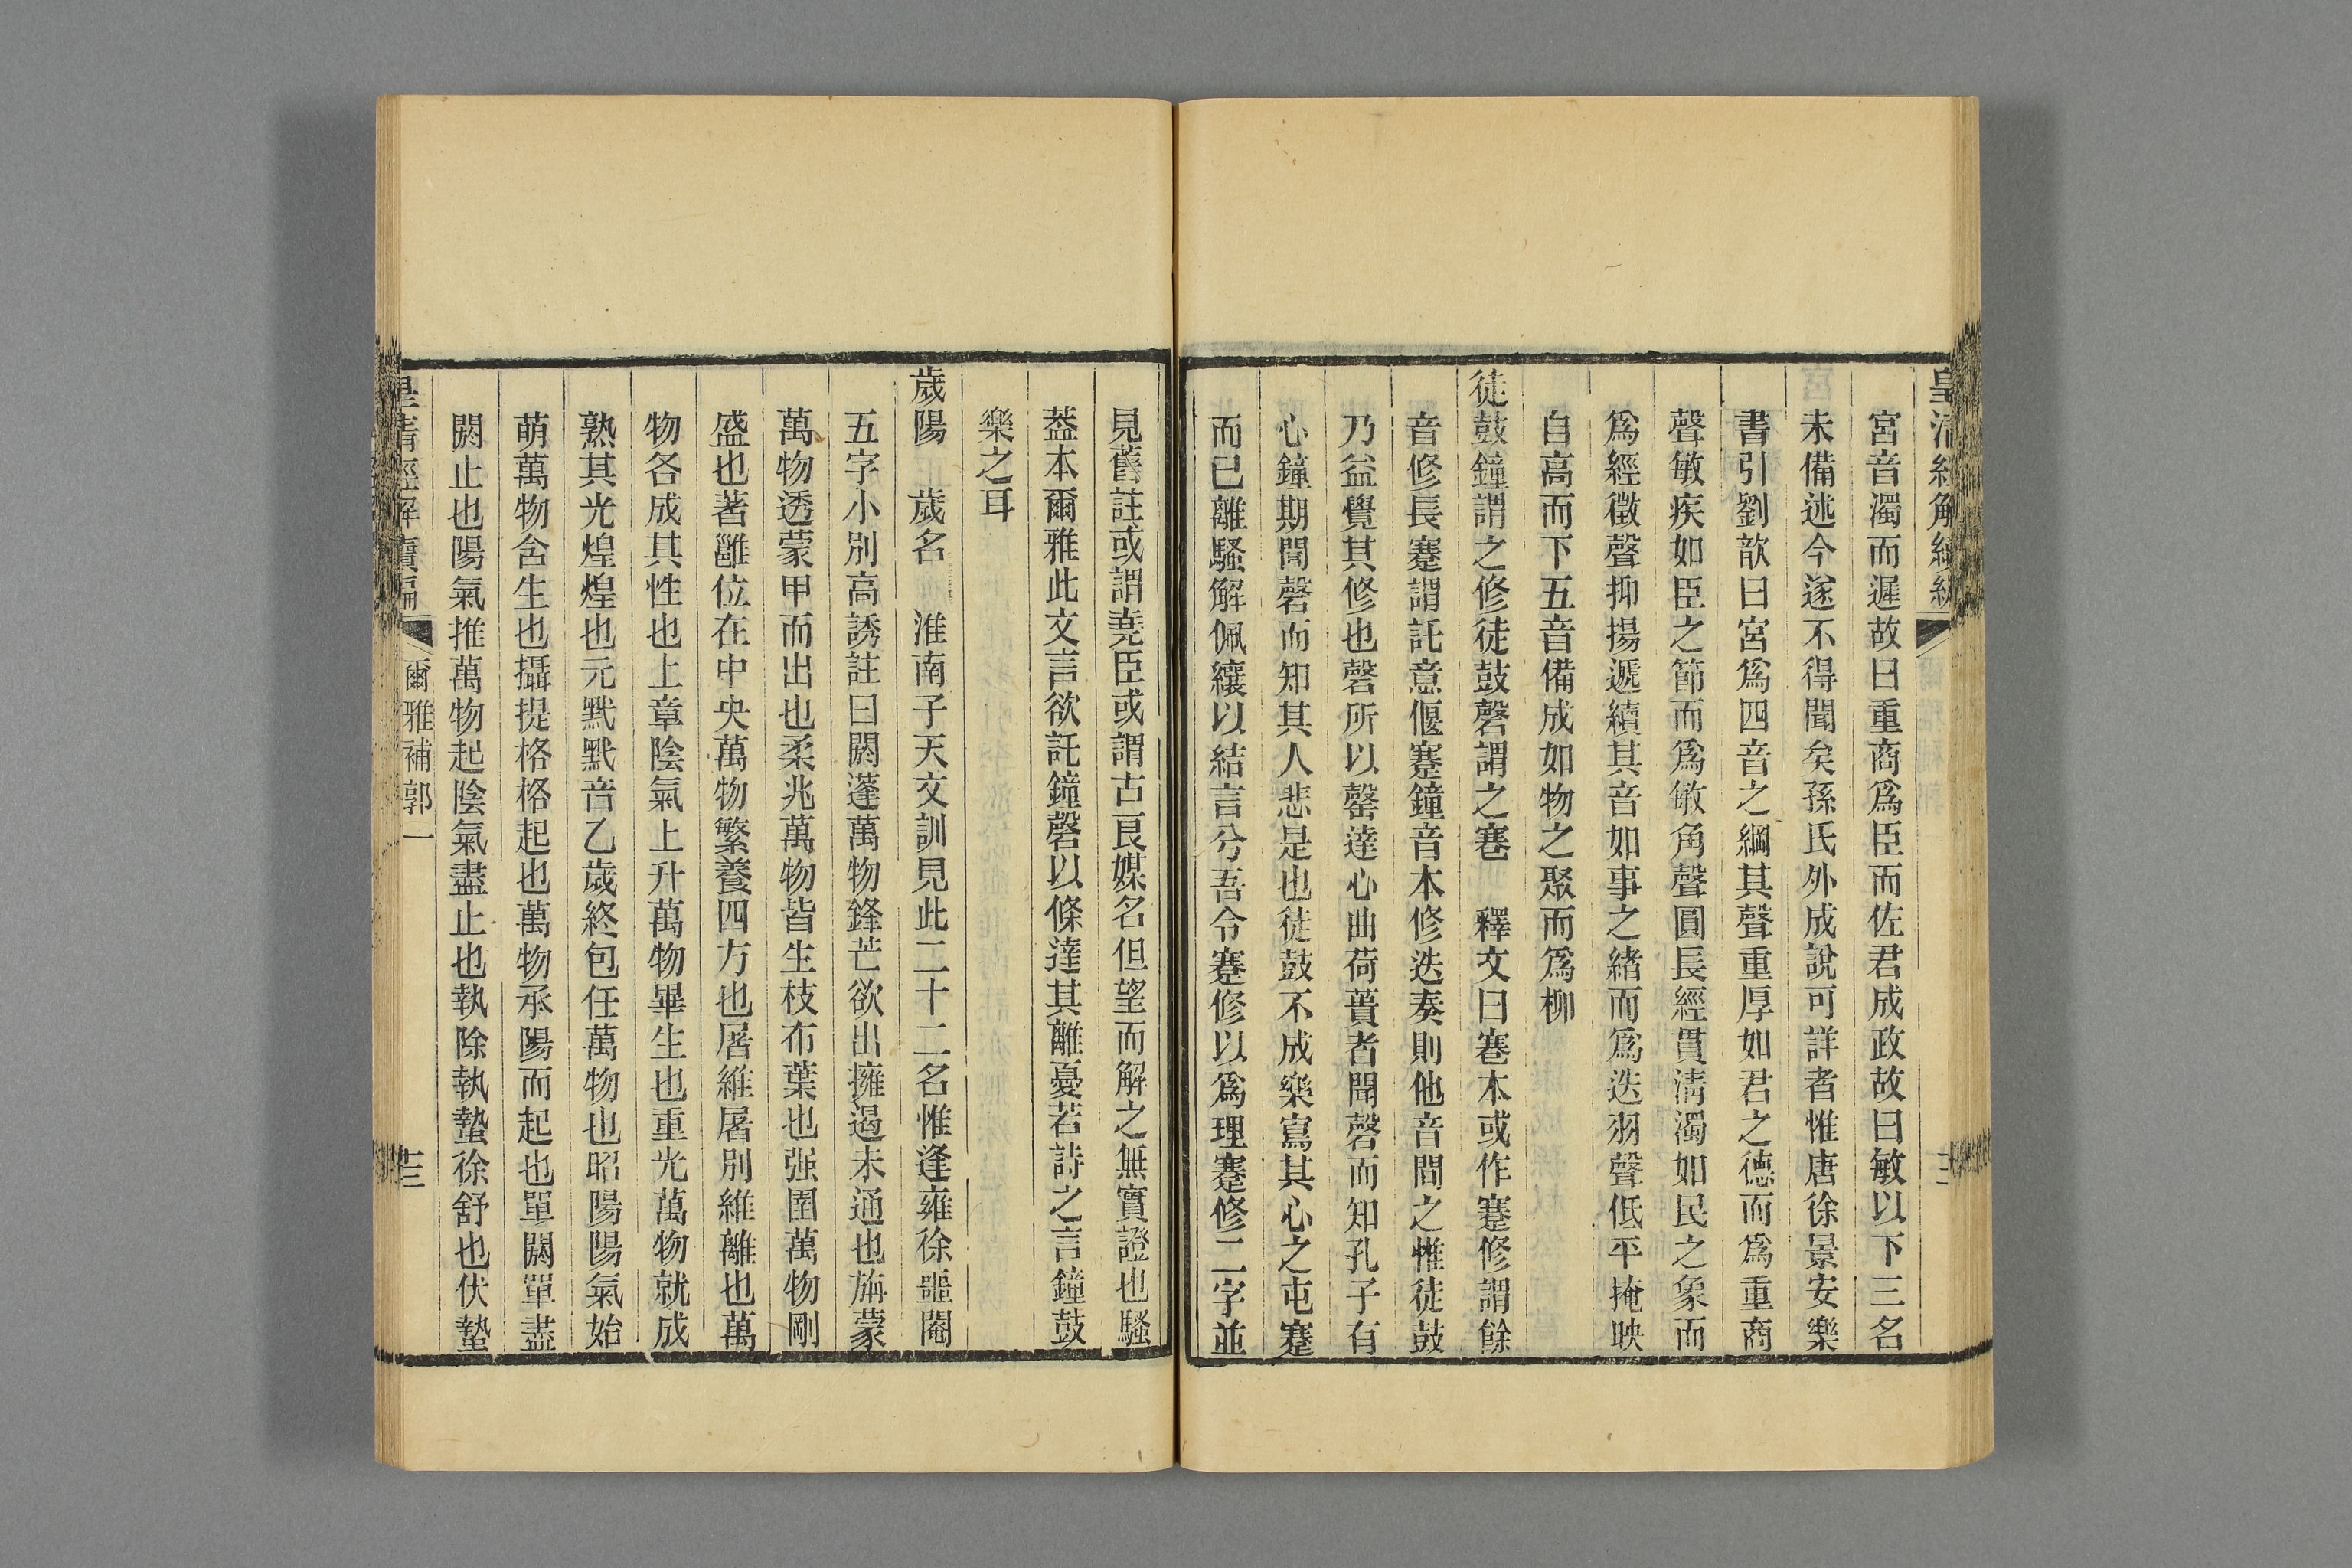 宮音濁而遲故曰重商爲臣而佐君成政故曰敏以下三名
未備述今遂不得聞矣孫氏外成說可詳者惟唐徐景安樂
書引劉歆曰宮爲四音之綱其聲重厚如君之德而爲重商
聲敏疾如臣之節而爲敏角聲圓長經貫淸濁如民之象而
爲經徵聲抑揚遞續其音如事之緒而爲迭羽聲低平掩映
自高而下五音備成如物之聚而爲柳
徒鼓鐘謂之修徒鼓磬謂之寋　釋文曰寋本或作蹇修謂餘
音修長蹇謂託意偃蹇鐘音本修迭奏則他音間之惟徒鼓
乃益覺其修也磬所以罄達心曲荷蕢者聞磬而知孔子有
心鐘期聞磬而知其人悲是也徒鼓不成樂寫其心之屯蹇
而已離騷解佩纕以結言兮吾令蹇修以爲理蹇修二字並
見舊註或謂堯臣或謂古良媒名但望而解之無實證也騷
葢本爾雅此文言欲託鐘磬以條達其離憂若詩之言鐘鼓
樂之耳
歲陽　歲名　淮南子天文訓見此二十二名惟逢雍徐噩閹
五字小別高誘註曰閼蓬萬物鋒芒欲出擁遏未通也旃蒙
萬物透蒙甲而出也柔兆萬物皆生枝布葉也强圉萬物剛
盛也著雝位在中央萬物繁養四方也屠維屠別維離也萬
物各成其性也上章陰氣上升萬物畢生也重光萬物就成
熟其光煌煌也元黓黓音乙歲終包任萬物也昭陽陽氣始
萌萬物含生也攝提格格起也萬物承陽而起也單閼單盡
閼止也陽氣推萬物起陰氣盡止也執除執蟄徐舒也伏蟄
皇淸經解續編
爾雅補郭一
十三